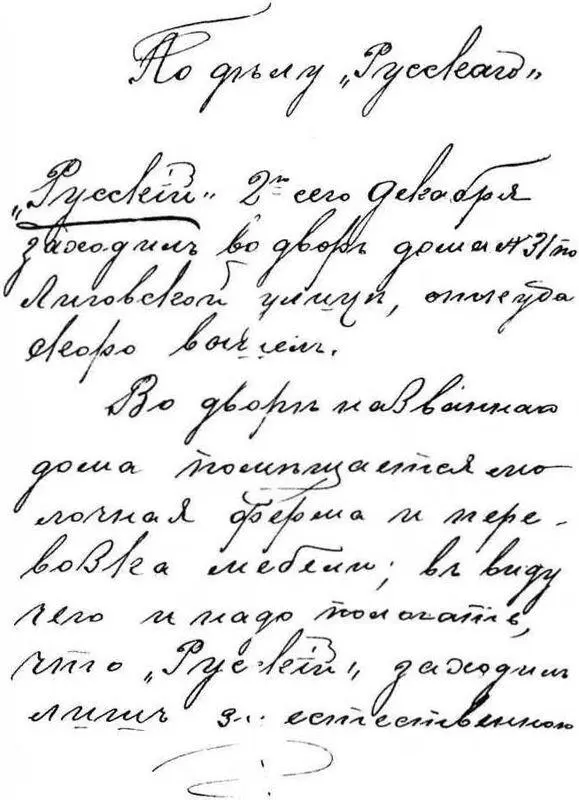 По дѣлу „Русскаго"
„Русскій" 2го сего декабря
заходилъ во дворъ дома №31 по
Лиговской улицѣ, откуда
скоро вышелъ.
Во дворѣ названнаго
дома помѣщается мо
лочная ферма и пере-
возка мебели; въ виду
чего и надо полагать,
что „Русскій" заходилъ
лишь з.. естественною